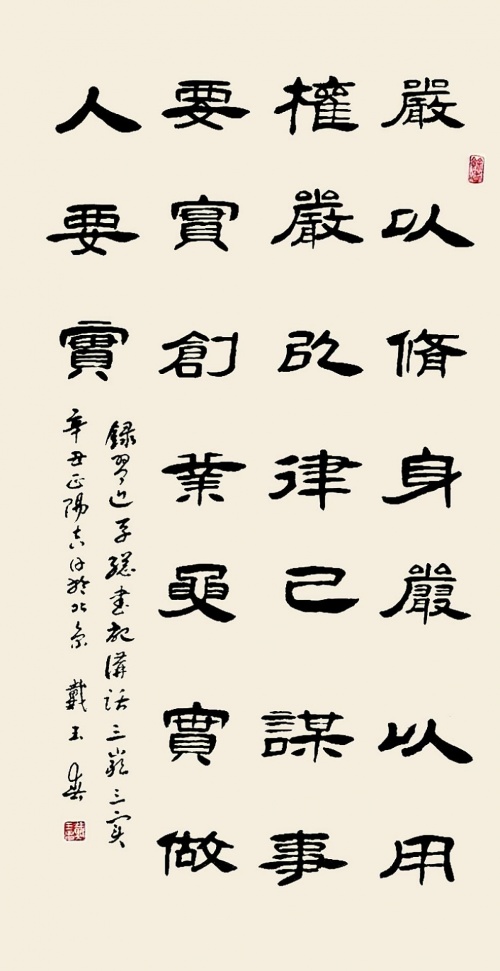 嚴以脩身嚴以用
權嚴以律己謀事
要實創業要實做
人要實
錄習近平總書記講話三嚴三实
辛丑正陽吉日於北京 戴玉